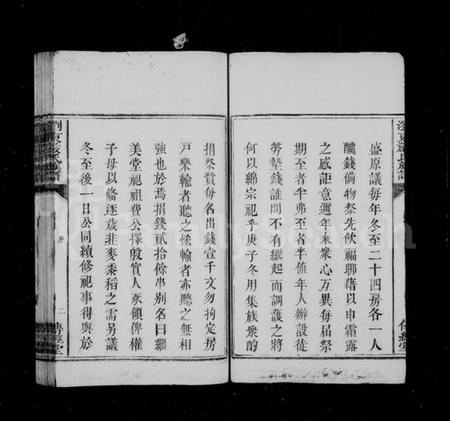 盛原議每年冬至二十四房各一人
醵錢備物祭先飲福聊藉以申霜露
之感詎意邇年來眾心互異每屆祭
期至者半弗至者半值年人辦設徒
勞墊錢誰問不有繼起而調護之將
何以綿宗祀乎庚子冬用集族眾酌
捐祭貲每名出錢壹千文勿拘定房
戶樂輸者聽之候輸者亦聽之無相
強也於焉捐錢貳拾餘串別名曰繼
美堂祀祖費公擇殷實人承領俾權
子母以備逐歲韭麥黍稻之需另議
冬至後一日公同續修祀事得與於
序
二